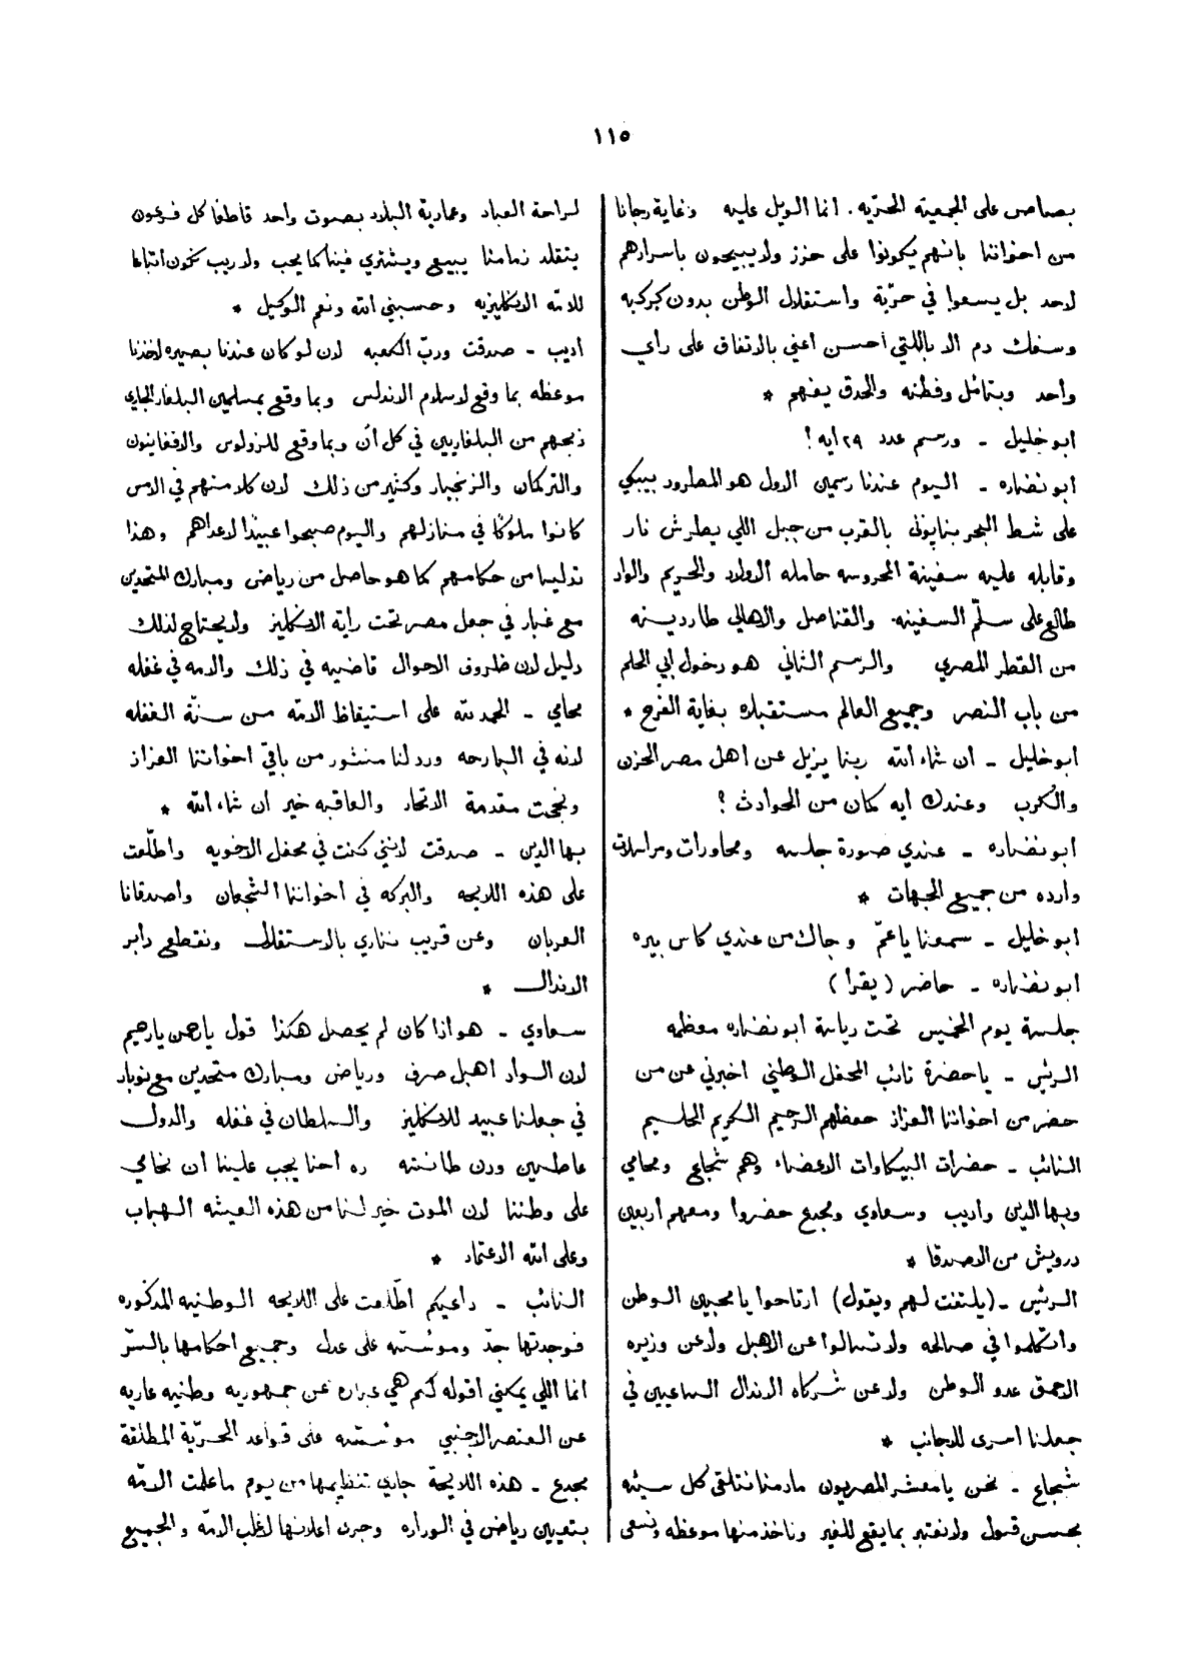 ١١٥
بصاص على الجمعية الحرّيه. انما الويل عليه وغاية رجانا
من اخواننا بانهم يكونوا على حزز ولا يبيحون باسرارهم
لاحد بل يسعوا في حرّية واستقلال الوطن بدون كركبه
وسفك دم الا باللتي أحسن اعني بالاتفاق على رأي
واحد وبتامّل وفطنه والحدق يفهم *
ابو خليل ـ ورسم عدد ٢٩ ايه ؟
ابو نضاره ـ اليوم عندنا رسمين الاول هو المطرود بيبكي
على شط البحر بنابولي بالقرب من جبل اللي يطرش نار
وقابله عليه سفينة المحروسه حامله الاولاد والحريم والواد
طالع على سلّم السفينه والقناصل والاهالي طاردينه
من القطر المصري والرسم الثاني هو دخول ابي الحلم
من باب النصر وجميع العالم مستقبلاه بغاية الفرح *
ابو خليل ـ ان شاء الله ربنا يزيل عن اهل مصر الحزن
والكرب وعندك ايه كمان من الحوادث ؟
ابو نضاره ـ عندي صورة جلسه ومحاورات ومراسلات
وارده من جميع الجهات *
ابو خليل ـ سمعنا يا عمّ وجالك من عندي كاس بيره
ابو نضاره ـ حاضر (يقرأ)
جلسة يوم الخميس تحت رياسة ابو نضاره معظمه
الرئيس ـ يا حضرة نائب المحفل الوطني اخبرني عن من
حضر من اخواننا العزاز حفظهم الرحيم الكريم الحليم
النائب ـ حضرات البيكاوات الاعضاء وهم شجاع ومحامي
وبها الدين واديب وسعاوي ومجدع حضروا ومعهم اربعين
درويش من الاصدقا *
الرئيس ـ (يلتفت لهم ويقول) ارتاحوا يا محبين الوطن
واتكلموا في صالحه ولا تسالوا عن الاهبل ولا عن وزيره
الاحمق عدو الوطن ولا عن شركاه الاندال الساعيين في
جعلنا اسرى للاجانب *
شجاع ـ نحن يا معشر المصريون مادمنا نتلقى كل سيئه
بحسن قبول ولا نعتبر بما يقع للغير وناخذ منها موعظه ونسعى
لراحة العباد وعمارية البلاد بصوت واحد قاطفا كل فرعون
يتقلد زمامنا يبيع ويشتري فينا كما يحب ولا ريب نكون اتباعا
للامّه الانكليزيه وحسبي الله ونعم الوكيل *
أديب ـ صدقت وربّ الكعبه لان لو كان عندنا بصيره لاخذنا
موعظه بما وقع لاسلام الاندلس وبما وقع بمسلمين البلغار الجاري
ذبحهم من البلغاريين في كل آن وبما وقع للزولوس والافغانيون
والتركمان والزنجبار وكثير من ذلك لان كلا منهم في الامس
كانوا ملوكًا في منازلهم واليوم صبحوا عبيدًا لاعداهم وهذا
تدليسا من حكامهم كما هو حاصل من رياض ومبارك المتحدين
مع غبار في جعل مصر تحت راية الانكليز ولا يحتاج لذلك
دليل لان ظروف الاحوال قاضيه في ذلك والامه في غفله
محامي ـ الحمد لله على استيقاظ الامّه من سنّة الغفله
لانه في البارحه ورد لنا منشور من باقي اخواننا العزاز
ونجحت مقدمة الاتحاد والعاقبه خير ان شاء الله *
بها الدين ـ صدقت لانني كنت في محفل الاخويه واطلّعت
على هذه اللايحه والبركه في اخواننا الشجعان واصدقانا
العربان وعن قريب ننادي بالاستقلال ونقطع دابر
الاندال *
سعاوي ـ هو اذا كان لم يحصل هكذا قول يا رحمن يا رحيم
لان الواد اهبل صرف ورياض ومبارك متحدين مع نوبار
في جعلنا عبيد للانكليز والسلطان في غفله والدول
عاطيين ودن طانشه ده أحنا يجب علينا ان نحامي
على وطننا لان الموت خير لنا من هذه العيشه الهباب
وعلى الله الاعتماد *
النائب ـ داعيكم اطّلعت على اللايحه الوطنيه المذكوره
فوجدتها جدّ وموسّسه على عدل وجميع احكامها بالسّر
انما اللي يمكنّي اقوله لكم هي عباره عن جمهوريه وطنيه عاريه
عن العنصر الاجنبي موسّسه على قواعد الحرّية المطلقة
مجدع ـ هذه اللايحة جاري تنظيمها من يوم ما علمت الامّه
بتعيين رياض في الوزاره وجرى اعلانها لاغلب الامّه والجميع